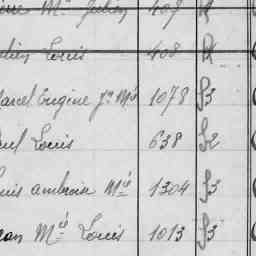 Mie Julien 409 R
Louis 408 R
Marcel Eugène Jn Mie 1078 S3
Paul Louis 638 S2
Louis ambroise Mie 1304 S3
Jean Mie Louis 1013 S3